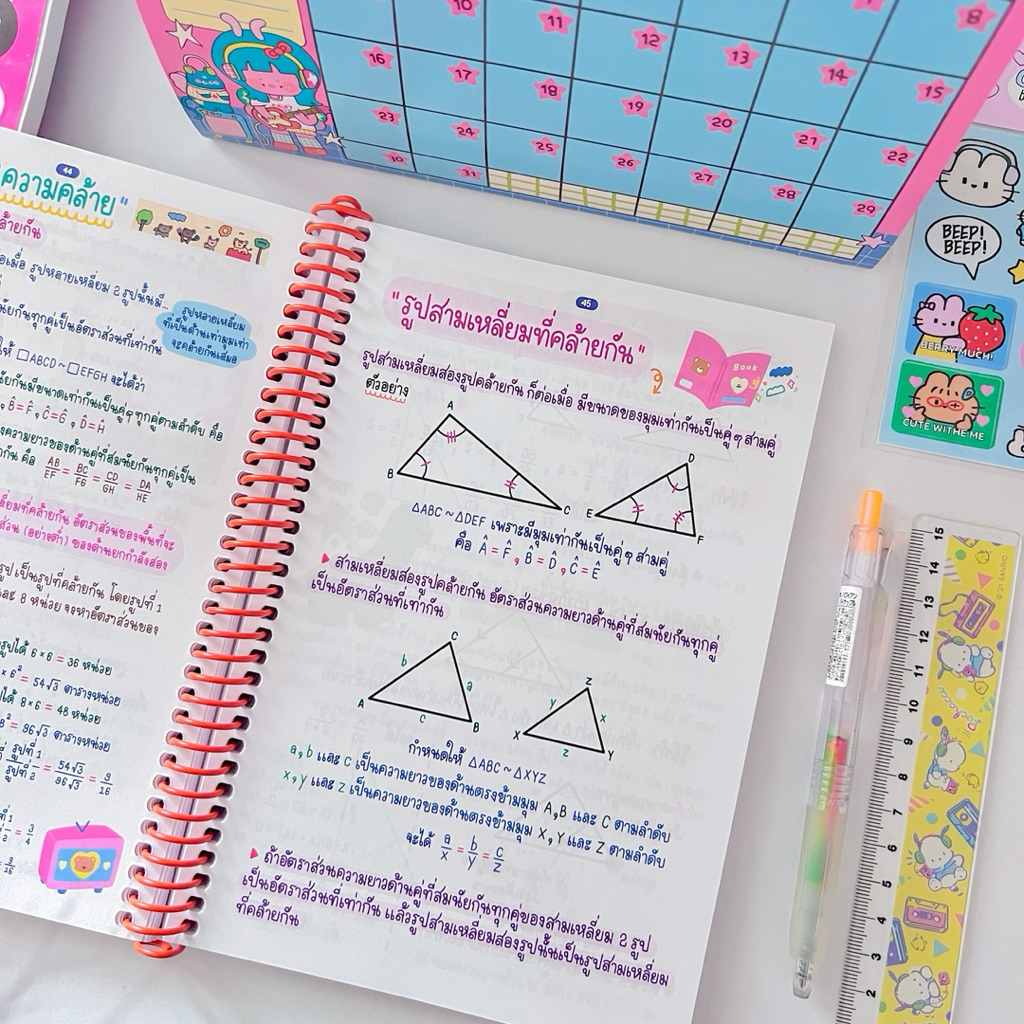 10 11 12 13 14 8
16 17 18 19 20 21 22
23 24 25 26 27 28 29
30 31
15
BEEP!
BEEP!
BERRY MUCH!
CUTE WITH ME
44
ความคล้าย"
ล้ายกัน
อเมื่อ รูปหลายเหลี่ยม 2 รูปนั้นมี...
รูปหลายเหลี่ยม
ที่เป็นด้านเท่ามุมเท่า
จะคล้ายกันเสมอ
นัยกันทุกคู่เป็นอัตราส่วนที่เท่ากัน
ให้ □ABCD ~ □EFGH จะได้ว่า
นัยกันมีขนาดเท่ากันเป็นคู่ๆ ทุกคู่ตามลำดับ คือ
, B̂ = F̂ , Ĉ = Ĝ , D̂ = Ĥ
งความยาวของด้านคู่ที่สมนัยกันทุกคู่เป็น
ากัน คือ AB/EF = BC/FG = CD/GH = DA/HE
ลี่ยมที่คล้ายกัน อัตราส่วนของพื้นที่จะ
ส่วน (อย่างต่ำ) ของด้านยกกำลังสอง
รูป เป็นรูปที่คล้ายกัน โดยรูปที่ 1
และ 8 หน่วย จงหาอัตราส่วนของ
รูปได้ 6 × 6 = 36 หน่วย
× 6² = 54√3 ตารางหน่วย
ได้ 8 × 6 = 48 หน่วย
8² = 96√3 ตารางหน่วย
รูปที่ 1/รูปที่ 2 = 54√3/96√3 = 9/16
= 3/4
9/16
45
"รูปสามเหลี่ยมที่คล้ายกัน"
Book
รูปสามเหลี่ยมสองรูปคล้ายกัน ก็ต่อเมื่อ มีขนาดของมุมเท่ากันเป็นคู่ๆ สามคู่
ตัวอย่าง
A
B
C
D
E
F
△ABC ~ △DEF เพราะมีมุมเท่ากันเป็นคู่ๆ สามคู่
คือ Â = F̂ , B̂ = D̂ , Ĉ = Ê
▶ สามเหลี่ยมสองรูปคล้ายกัน อัตราส่วนความยาวด้านคู่ที่สมนัยกันทุกคู่
เป็นอัตราส่วนที่เท่ากัน
C
b
a
A
c
B
Z
y
x
X
z
Y
กำหนดให้ △ABC ~ △XYZ
a, b และ c เป็นความยาวของด้านตรงข้ามมุม A, B และ C ตามลำดับ
x, y และ z เป็นความยาวของด้านตรงข้ามมุม X, Y และ Z ตามลำดับ
จะได้ a/x = b/y = c/z
▶ ถ้าอัตราส่วนความยาวด้านคู่ที่สมนัยกันทุกคู่ของสามเหลี่ยม 2 รูป
เป็นอัตราส่วนที่เท่ากัน แล้วรูปสามเหลี่ยมสองรูปนั้นเป็นรูปสามเหลี่ยม
ที่คล้ายกัน
15
14
13
12
11
10
9
8
7
6
5
4
3
2
SANRIO